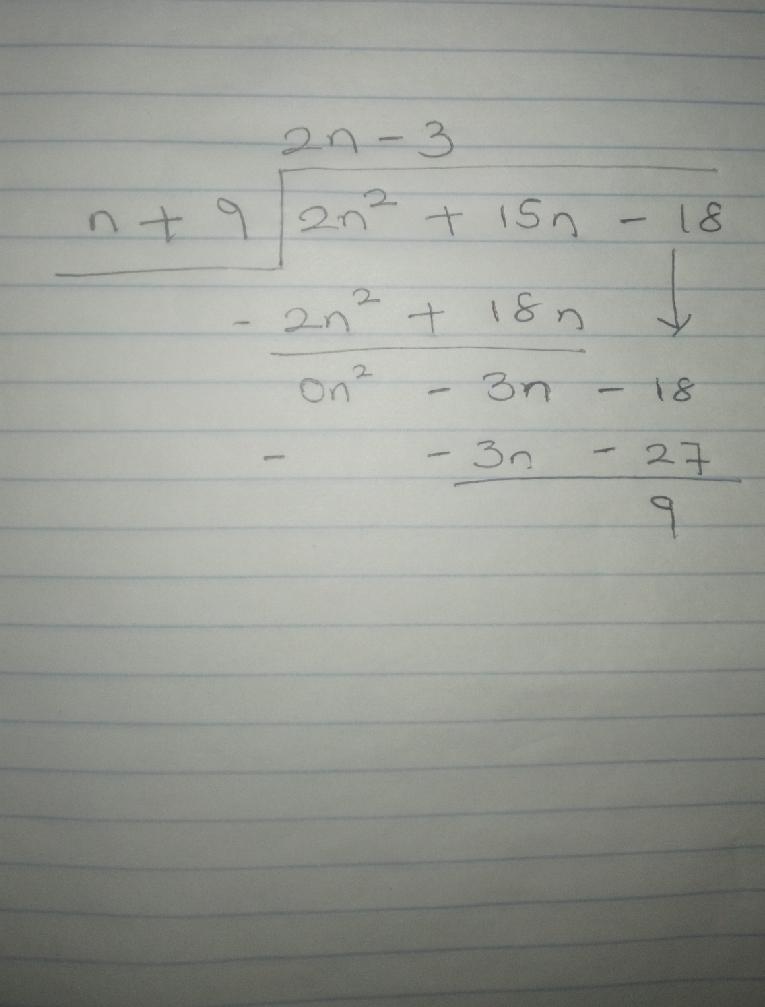 2n - 3
n + 9 2n² + 15n - 18
- 2n² + 18n ↓
0n² - 3n - 18
- - 3n - 27
9